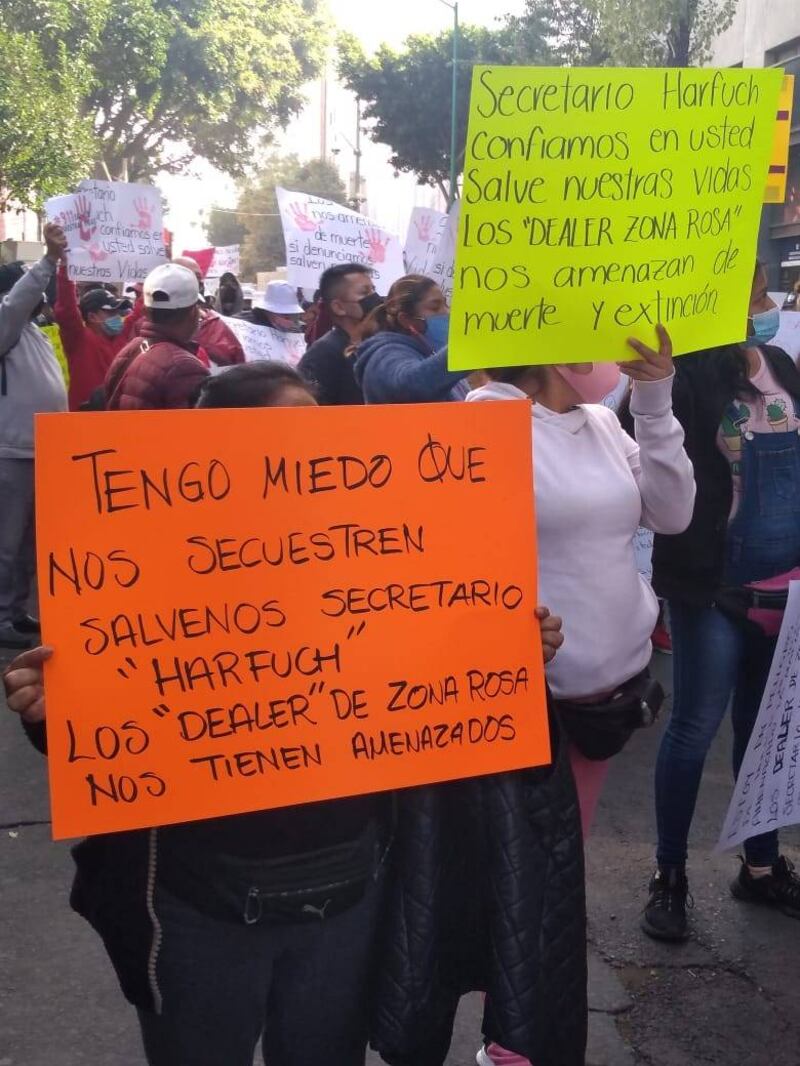 Secretario Harfuch
confiamos en usted
Salve nuestras vidas
LOS "DEALER ZONA ROSA"
nos amenazan de
muerte y extinción
TENGO MIEDO QUE
NOS SECUESTREN
SALVENOS SECRETARIO
"HARFUCH"
LOS "DEALER" DE ZONA ROSA
NOS TIENEN AMENAZADOS
confiamos en
usted salve
nuestras Vidas
LOS
nos amenazan
de muerte
si denunciamos
salven
LOS DEALER DE